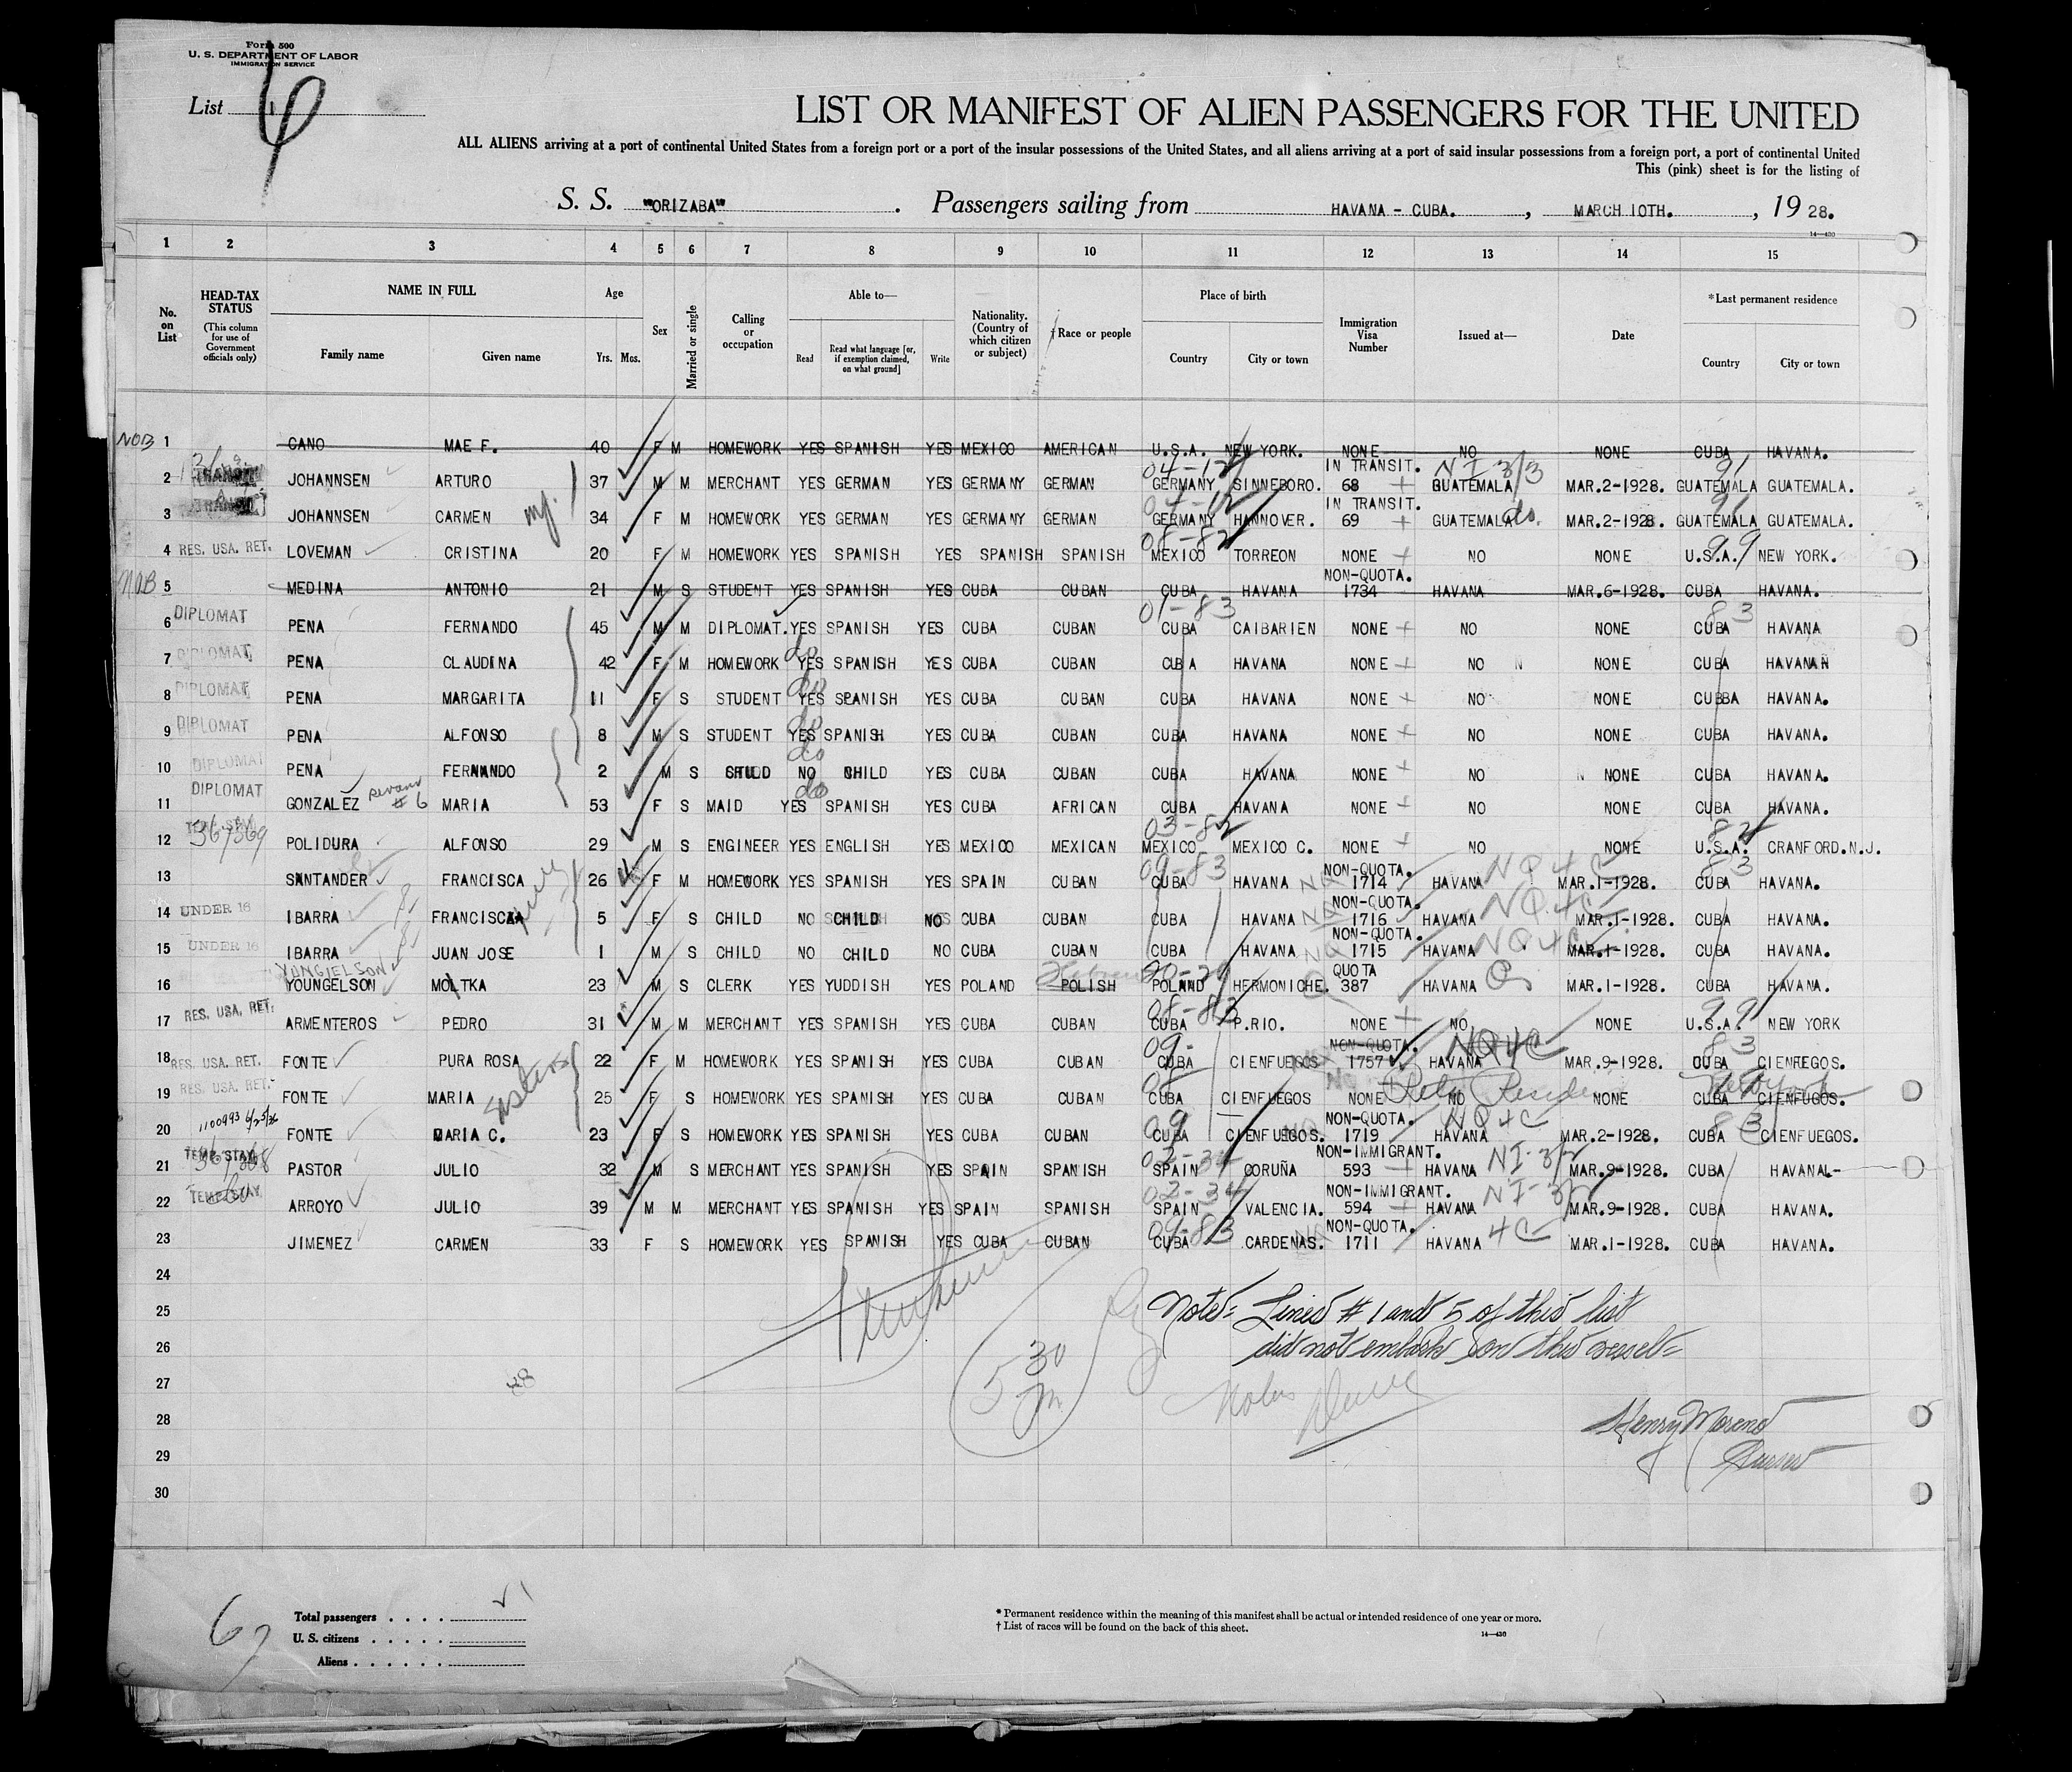 Form 500
U. S. DEPARTMENT OF LABOR
IMMIGRATION SERVICE
List 1
LIST OR MANIFEST OF ALIEN PASSENGERS FOR THE UNITED
ALL ALIENS arriving at a port of continental United States from a foreign port or a port of the insular possessions of the United States, and all aliens arriving at a port of said insular possessions from a foreign port, a port of continental United
This (pink) sheet is for the listing of
S. S. "ORIZABA". Passengers sailing from HAVANA - CUBA. , MARCH 10TH. , 19 28.
14—430
1 2 3 4 5 6 7 8 9 10 11 12 13 14 15
No. on List
HEAD-TAX STATUS (This column for use of Government officials only)
NAME IN FULL
Family name Given name
Age
Yrs. Mos.
Sex
Married or single
Calling or occupation
Able to—
Read Read what language [or, if exemption claimed, on what ground] Write
Nationality. (Country of which citizen or subject)
† Race or people
Place of birth
Country City or town
Immigration Visa Number
Issued at—
Date
*Last permanent residence
Country City or town
NOB 1 CANO MAE F. 40 F M HOMEWORK YES SPANISH YES MEXICO AMERICAN U.S.A. NEW YORK. NONE NO NONE CUBA HAVANA.
04-12 IN TRANSIT. NI 3/3 91
2 TRANSIT JOHANNSEN ARTURO 37 M M MERCHANT YES GERMAN YES GERMANY GERMAN GERMANY SINNEBORO. 68 GUATEMALA MAR.2-1928. GUATEMALA GUATEMALA.
04-12 IN TRANSIT. 91
3 TRANSIT JOHANNSEN CARMEN 34 F M HOMEWORK YES GERMAN YES GERMANY GERMAN GERMANY HANNOVER. 69 GUATEMALA do. MAR.2-1928. GUATEMALA GUATEMALA.
08-82 99
4 RES. USA. RET. LOVEMAN CRISTINA 20 F M HOMEWORK YES SPANISH YES SPANISH SPANISH MEXICO TORREON NONE NO NONE U.S.A. NEW YORK.
NON-QUOTA.
NOB 5 MEDINA ANTONIO 21 M S STUDENT YES SPANISH YES CUBA CUBAN CUBA HAVANA 1734 HAVANA MAR.6-1928. CUBA HAVANA.
01-83 83
6 DIPLOMAT PENA FERNANDO 45 M M DIPLOMAT. YES SPANISH YES CUBA CUBAN CUBA CAIBARIEN NONE NO NONE CUBA HAVANA
do
7 DIPLOMAT PENA CLAUDINA 42 F M HOMEWORK YES SPANISH YES CUBA CUBAN CUBA HAVANA NONE NO N NONE CUBA HAVANAN
do
8 DIPLOMAT PENA MARGARITA 11 F S STUDENT YES SPANISH YES CUBA CUBAN CUBA HAVANA NONE NO NONE CUBBA HAVANA.
do
9 DIPLOMAT PENA ALFONSO 8 M S STUDENT YES SPANISH YES CUBA CUBAN CUBA HAVANA NONE NO NONE CUBA HAVANA.
do
10 DIPLOMAT PENA FERNANDO 2 M S CHILD NO CHILD YES CUBA CUBAN CUBA HAVANA NONE NO N NONE CUBA HAVANA.
do
11 DIPLOMAT GONZALEZ servant #6 MARIA 53 F S MAID YES SPANISH YES CUBA AFRICAN CUBA HAVANA NONE NO NONE CUBA HAVANA.
TEMP. STAY 03-82 82
12 POLIDURA ALFONSO 29 M S ENGINEER YES ENGLISH YES MEXICO MEXICAN MEXICO MEXICO C. NONE NO NONE U.S.A. CRANFORD.N.J.
09-83 NON-QUOTA. NQ 4C 83
13 SANTANDER FRANCISCA 26 F M HOMEWORK YES SPANISH YES SPAIN CUBAN CUBA HAVANA 1714 HAVANA MAR.1-1928. CUBA HAVANA.
NON-QUOTA. NQ 4C
14 UNDER 16 IBARRA FRANCISCA 5 F S CHILD NO CHILD NO CUBA CUBAN CUBA HAVANA 1716 HAVANA MAR.1-1928. CUBA HAVANA.
NON-QUOTA. NQ 4C
15 UNDER 16 IBARRA JUAN JOSE 1 M S CHILD NO CHILD NO CUBA CUBAN CUBA HAVANA 1715 HAVANA MAR.1-1928. CUBA HAVANA.
YUNGIELSON Hebrew QUOTA
16 YOUNGELSON MOLTKA 23 M S CLERK YES YUDDISH YES POLAND POLISH POLAND HERMONICHE. 387 HAVANA Q MAR.1-1928. CUBA HAVANA.
08-83 99
17 RES. USA. RET. ARMENTEROS PEDRO 31 M M MERCHANT YES SPANISH YES CUBA CUBAN CUBA P.RIO. NONE NO NONE U.S.A. NEW YORK
09- NON-QUOTA. NQ4C 83
18 RES. USA. RET. FONTE PURA ROSA 22 F M HOMEWORK YES SPANISH YES CUBA CUBAN CUBA CIENFUEGOS 1757 HAVANA MAR.9-1928. CUBA CIENFEGOS.
19 RES. USA. RET. FONTE MARIA sisters 25 F S HOMEWORK YES SPANISH YES CUBA CUBAN CUBA CIENFUEGOS NONE NO NONE CUBA CIENFUGOS.
NON-QUOTA. NQ 4C
20 FONTE MARIA C. 23 F S HOMEWORK YES SPANISH YES CUBA CUBAN CUBA CIENFUEGOS. 1719 HAVANA MAR.2-1928. CUBA CIENFUEGOS.
TEMP. STAY 02-34 NON-IMMIGRANT. NI-3/2
21 PASTOR JULIO 32 M S MERCHANT YES SPANISH YES SPAIN SPANISH SPAIN CORUÑA 593 HAVANA MAR.9-1928. CUBA HAVANAL-
TEMP. STAY 02-34 NON-IMMIGRANT. NI-3/2
22 ARROYO JULIO 39 M M MERCHANT YES SPANISH YES SPAIN SPANISH SPAIN VALENCIA. 594 HAVANA MAR.9-1928. CUBA HAVANA.
09-83 NON-QUOTA. 4C
23 JIMENEZ CARMEN 33 F S HOMEWORK YES SPANISH YES CUBA CUBAN CUBA CARDENAS. 1711 HAVANA MAR.1-1928. CUBA HAVANA.
24
25 Note= Lines # 1 and 5 of this list
26 did not embark on this vessel=
530
27 48
28 Henry Moreno
29 Purser
30
Total passengers . . . .
U. S. citizens . . . . .
Aliens . . . . . .
* Permanent residence within the meaning of this manifest shall be actual or intended residence of one year or more.
† List of races will be found on the back of this sheet.
14—430